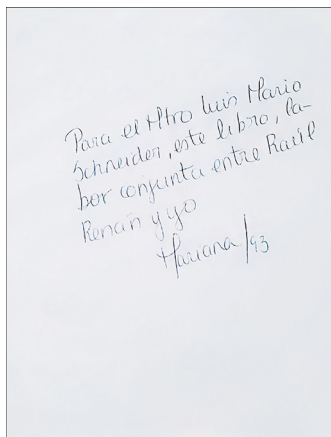 Para el Mtro Luis Mario
Schneider, este libro, la-
bor conjunta entre Raúl
Renán y yo
Mariana/93